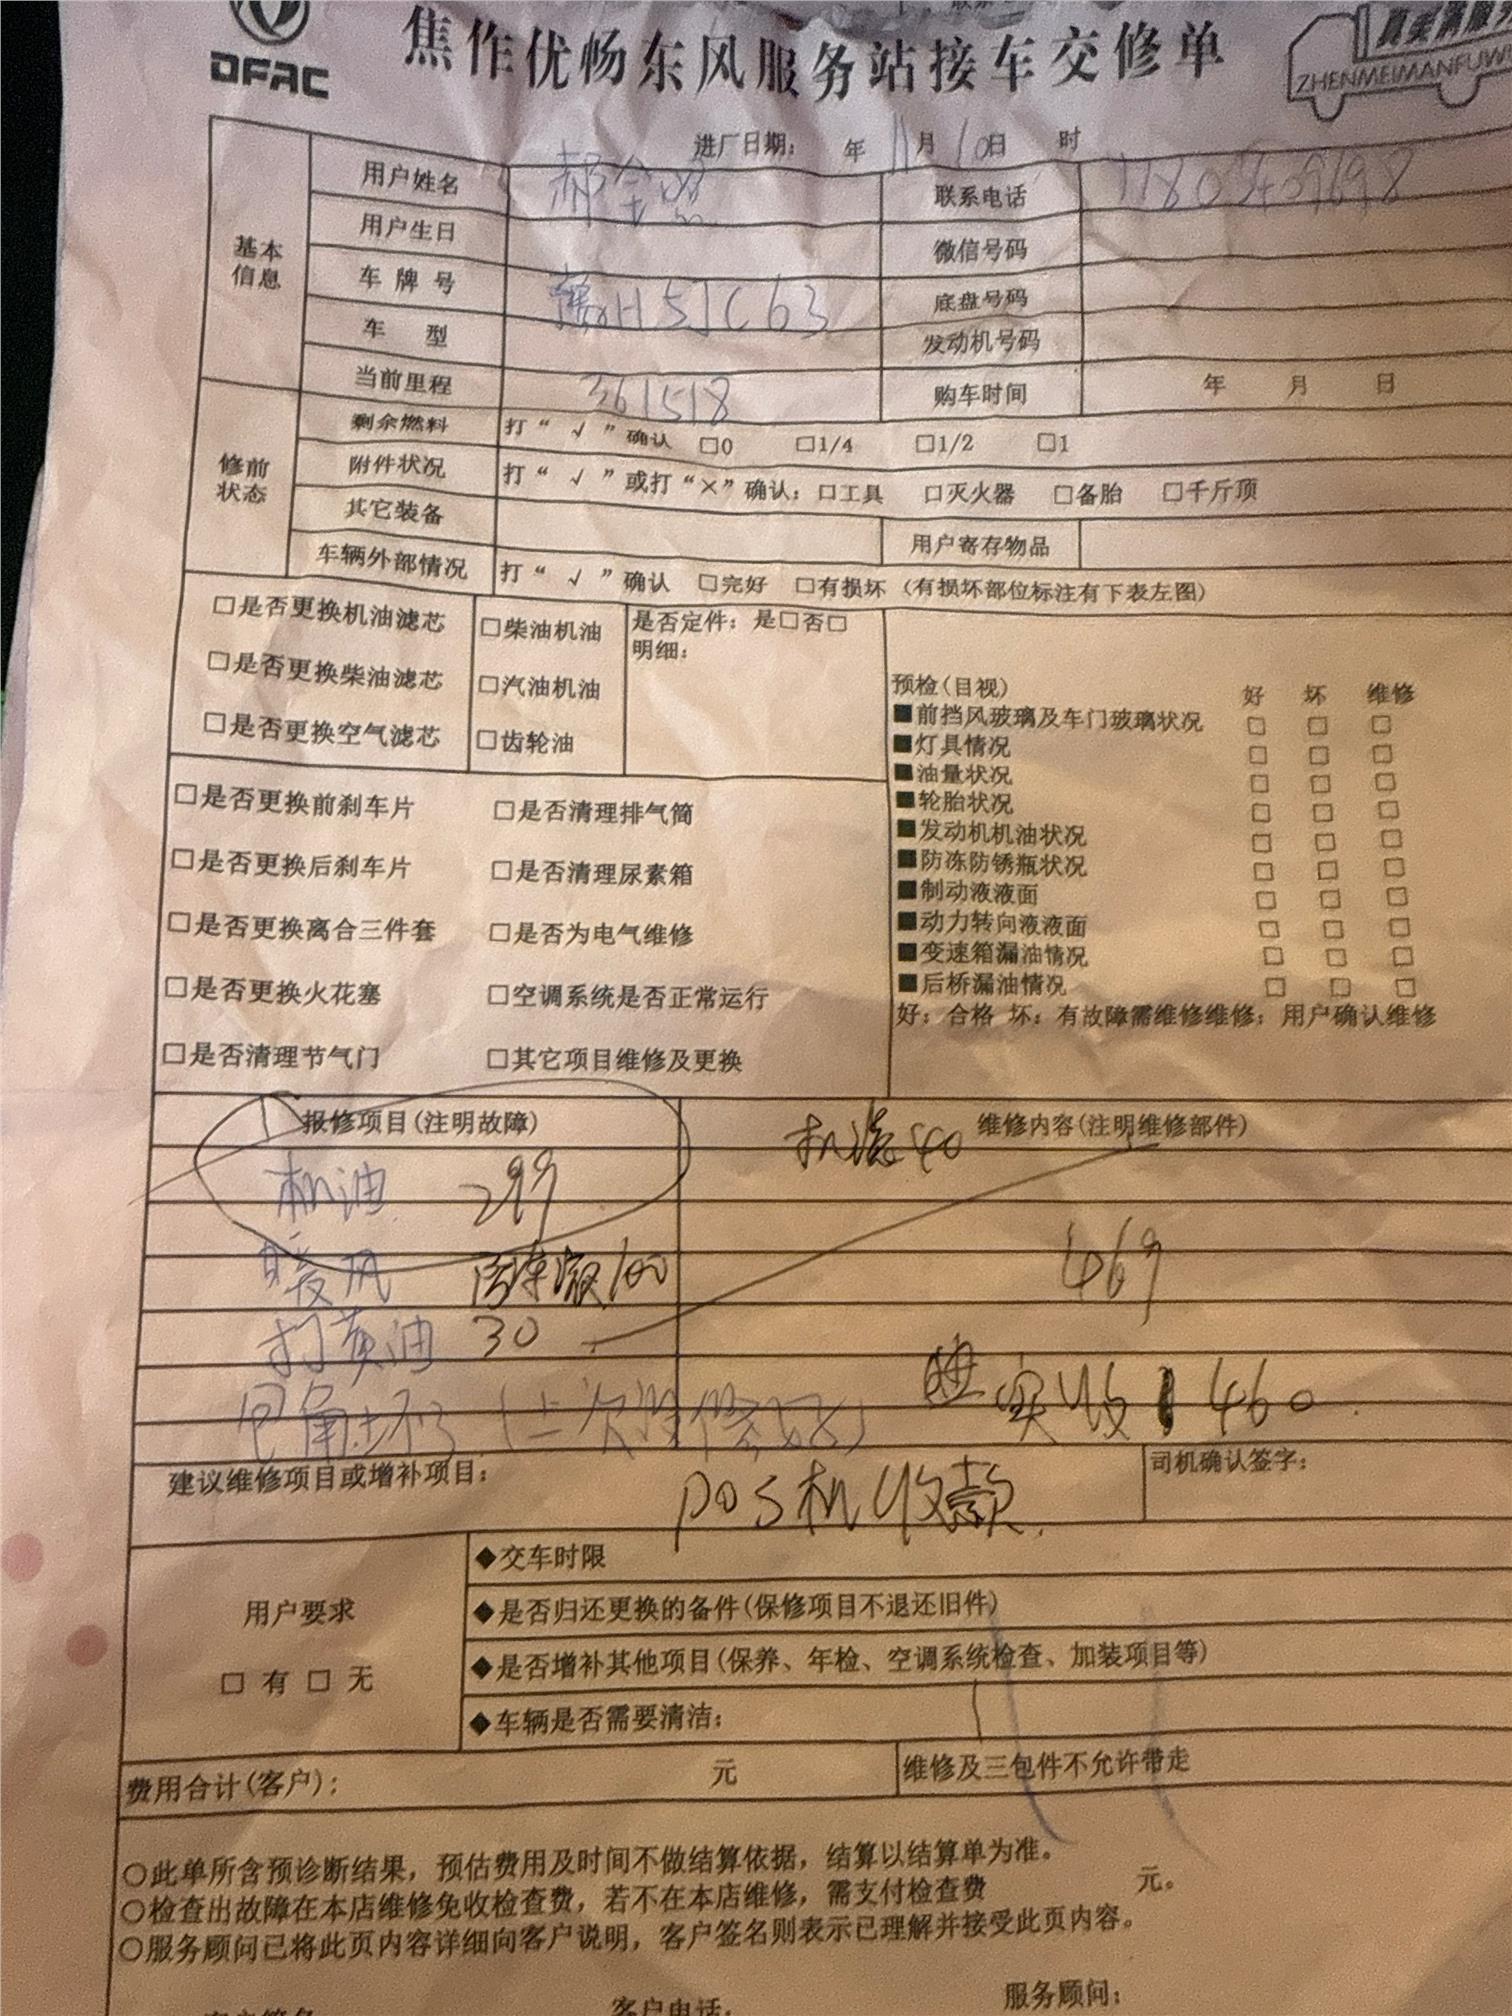 DFAC
焦作优畅东风服务站接车交修单
ZHENMEIMANFUWU
进厂日期： 年 11月 10日 时
基本信息
用户姓名 郝全 联系电话
用户生日 微信号码
车牌号 豫H5JC63 底盘号码
车型 发动机号码
当前里程 361518 购车时间 年 月 日
修前状态
剩余燃料 打“√”确认 □0 □1/4 □1/2 □1
附件状况 打“√”或打“×”确认：□工具 □灭火器 □备胎 □千斤顶
其它装备 用户寄存物品
车辆外部情况 打“√”确认 □完好 □有损坏（有损坏部位标注有下表左图）
□是否更换机油滤芯 □柴油机油 是否定件：是□否□
明细：
□是否更换柴油滤芯 □汽油机油
□是否更换空气滤芯 □齿轮油
□是否更换前刹车片 □是否清理排气筒
□是否更换后刹车片 □是否清理尿素箱
□是否更换离合三件套 □是否为电气维修
□是否更换火花塞 □空调系统是否正常运行
□是否清理节气门 □其它项目维修及更换
预检(目视) 好 坏 维修
■前挡风玻璃及车门玻璃状况 □ □ □
■灯具情况 □ □ □
■油量状况 □ □ □
■轮胎状况 □ □ □
■发动机机油状况 □ □ □
■防冻防锈瓶状况 □ □ □
■制动液液面 □ □ □
■动力转向液液面 □ □ □
■变速箱漏油情况 □ □ □
■后桥漏油情况 □ □ □
好：合格 坏：有故障需维修维修：用户确认维修
报修项目(注明故障) 机滤40 维修内容(注明维修部件)
机油 299
469
暖风 防冻液100
打黄油 30
实收 460
包角坏了（上次没修好）
建议维修项目或增补项目： POS机收款. 司机确认签字：
用户要求
□有□无
◆交车时限
◆是否归还更换的备件(保修项目不退还旧件)
◆是否增补其他项目(保养、年检、空调系统检查、加装项目等)
◆车辆是否需要清洁：
费用合计(客户)： 元 维修及三包件不允许带走
○此单所含预诊断结果，预估费用及时间不做结算依据，结算以结算单为准。
○检查出故障在本店维修免收检查费，若不在本店维修，需支付检查费 元。
○服务顾问已将此页内容详细向客户说明，客户签名则表示已理解并接受此页内容。
客户签名 客户电话： 服务顾问：